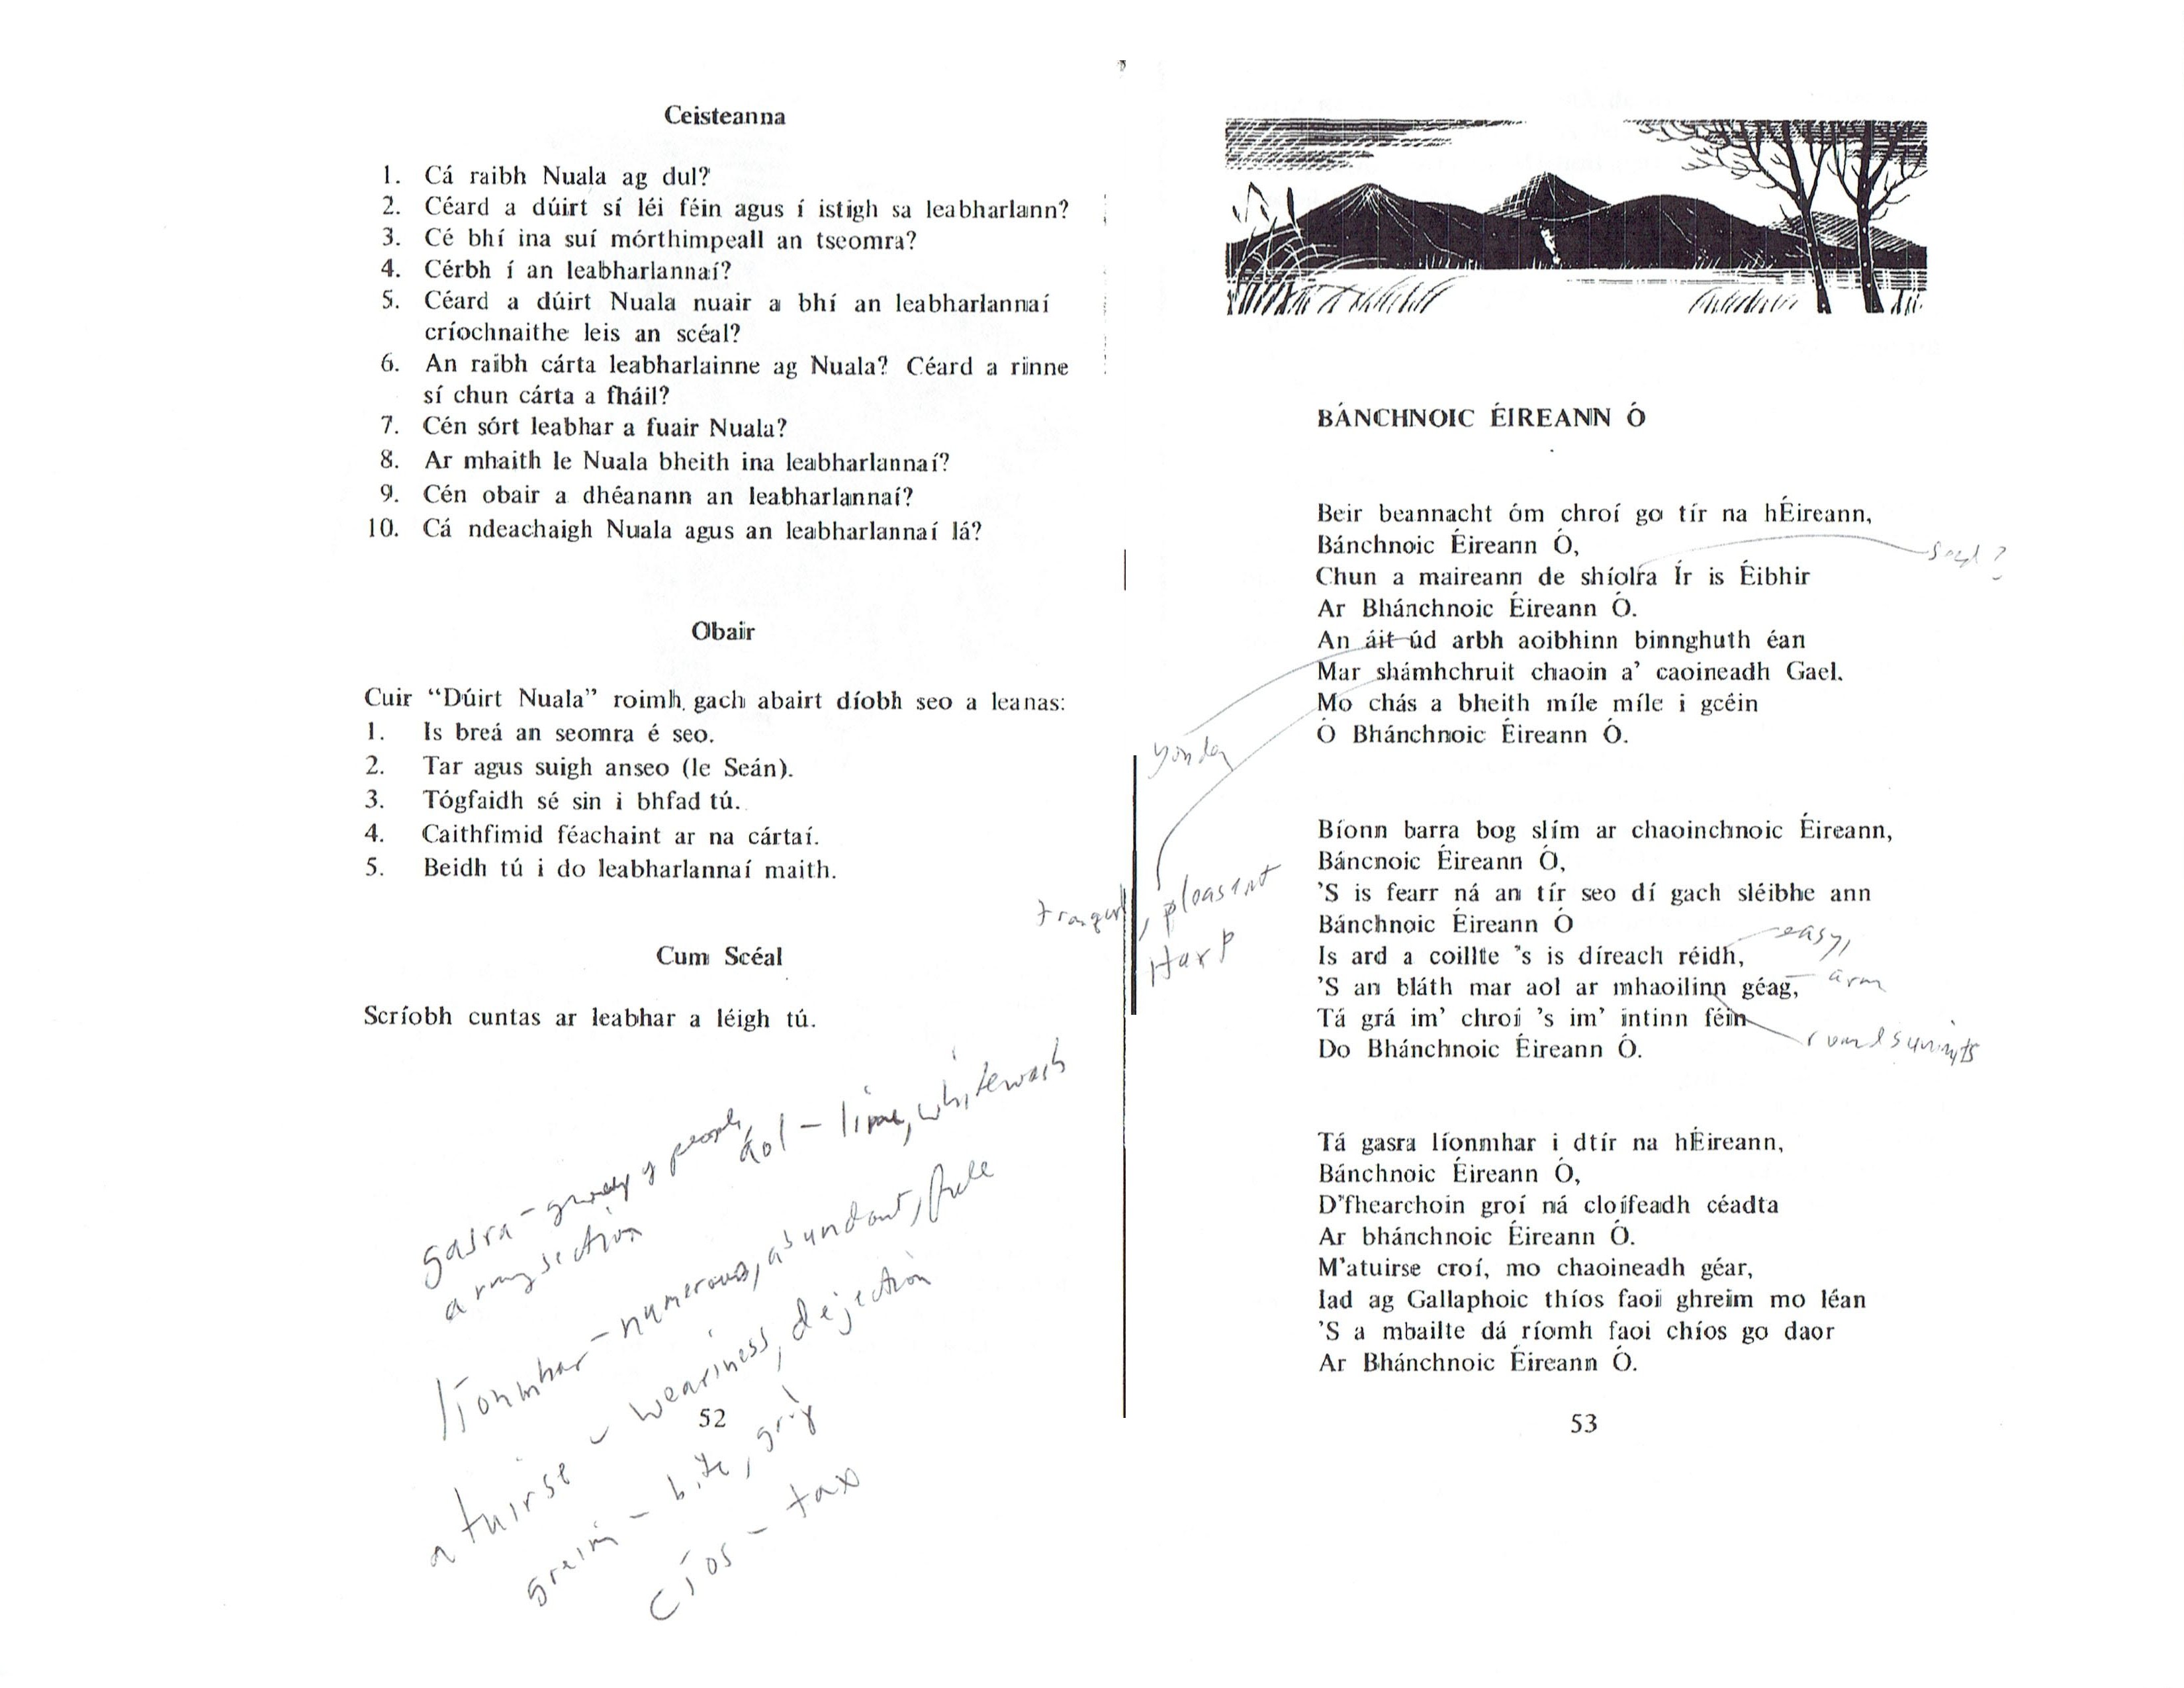 Ceisteanna
1. Cá raibh Nuala ag dul?
2. Céard a dúirt sí léi féin agus í istigh sa leabharlann?
3. Cé bhí ina suí mórthimpeall an tseomra?
4. Cérbh í an leabharlannaí?
5. Céard a dúirt Nuala nuair a bhí an leabharlannaí
críochnaithe leis an scéal?
6. An raibh cárta leabharlainne ag Nuala? Céard a rinne
sí chun cárta a fháil?
7. Cén sórt leabhar a fuair Nuala?
8. Ar mhaith le Nuala bheith ina leabharlannaí?
9. Cén obair a dhéanann an leabharlannaí?
10. Cá ndeachaigh Nuala agus an leabharlannaí lá?
Obair
Cuir “Dúirt Nuala” roimh gach abairt díobh seo a leanas:
1. Is breá an seomra é seo.
2. Tar agus suigh anseo (le Seán).
3. Tógfaidh sé sin i bhfad tú.
4. Caithfimid féachaint ar na cártaí.
5. Beidh tú i do leabharlannaí maith.
Cum Scéal
Scríobh cuntas ar leabhar a léigh tú.
aol – lime, whitewash
gasra – of people,
army section
líonmhar – numerous, abundant,
atuirse – weariness, dejection
greim – bite, grip
cíos – tax
52
BÁNCHNOIC ÉIREANN Ó
Beir beannacht óm chroí go tír na hÉireann,
Bánchnoic Éireann Ó,
seed?
Chun a maireann de shíolra Ír is Éibhir
Ar Bhánchnoic Éireann Ó.
An áit úd arbh aoibhinn binnghuth éan
Mar shámhchruit chaoin a’ caoineadh Gael.
Mo chás a bheith míle míle i gcéin
Ó Bhánchnoic Éireann Ó.
yonder
tranquil, pleasant
Harp
Bíonn barra bog slím ar chaoinchnoic Éireann,
Báncnoic Éireann Ó,
’S is fearr ná an tír seo dí gach sléibhe ann
Bánchnoic Éireann Ó
easy,
Is ard a coillte ’s is díreach réidh,
’S an bláth mar aol ar mhaoilinn géag, – arm
Tá grá im’ chroí ’s im’ intinn féin
round sumits
Do Bhánchnoic Éireann Ó.
Tá gasra líonmhar i dtír na hÉireann,
Bánchnoic Éireann Ó,
D’fhearchoin groí ná cloífeadh céadta
Ar bhánchnoic Éireann Ó.
M’atuirse croí, mo chaoineadh géar,
Iad ag Gallaphoic thíos faoi ghreim mo léan
’S a mbailte dá ríomh faoi chíos go daor
Ar Bhánchnoic Éireann Ó.
53